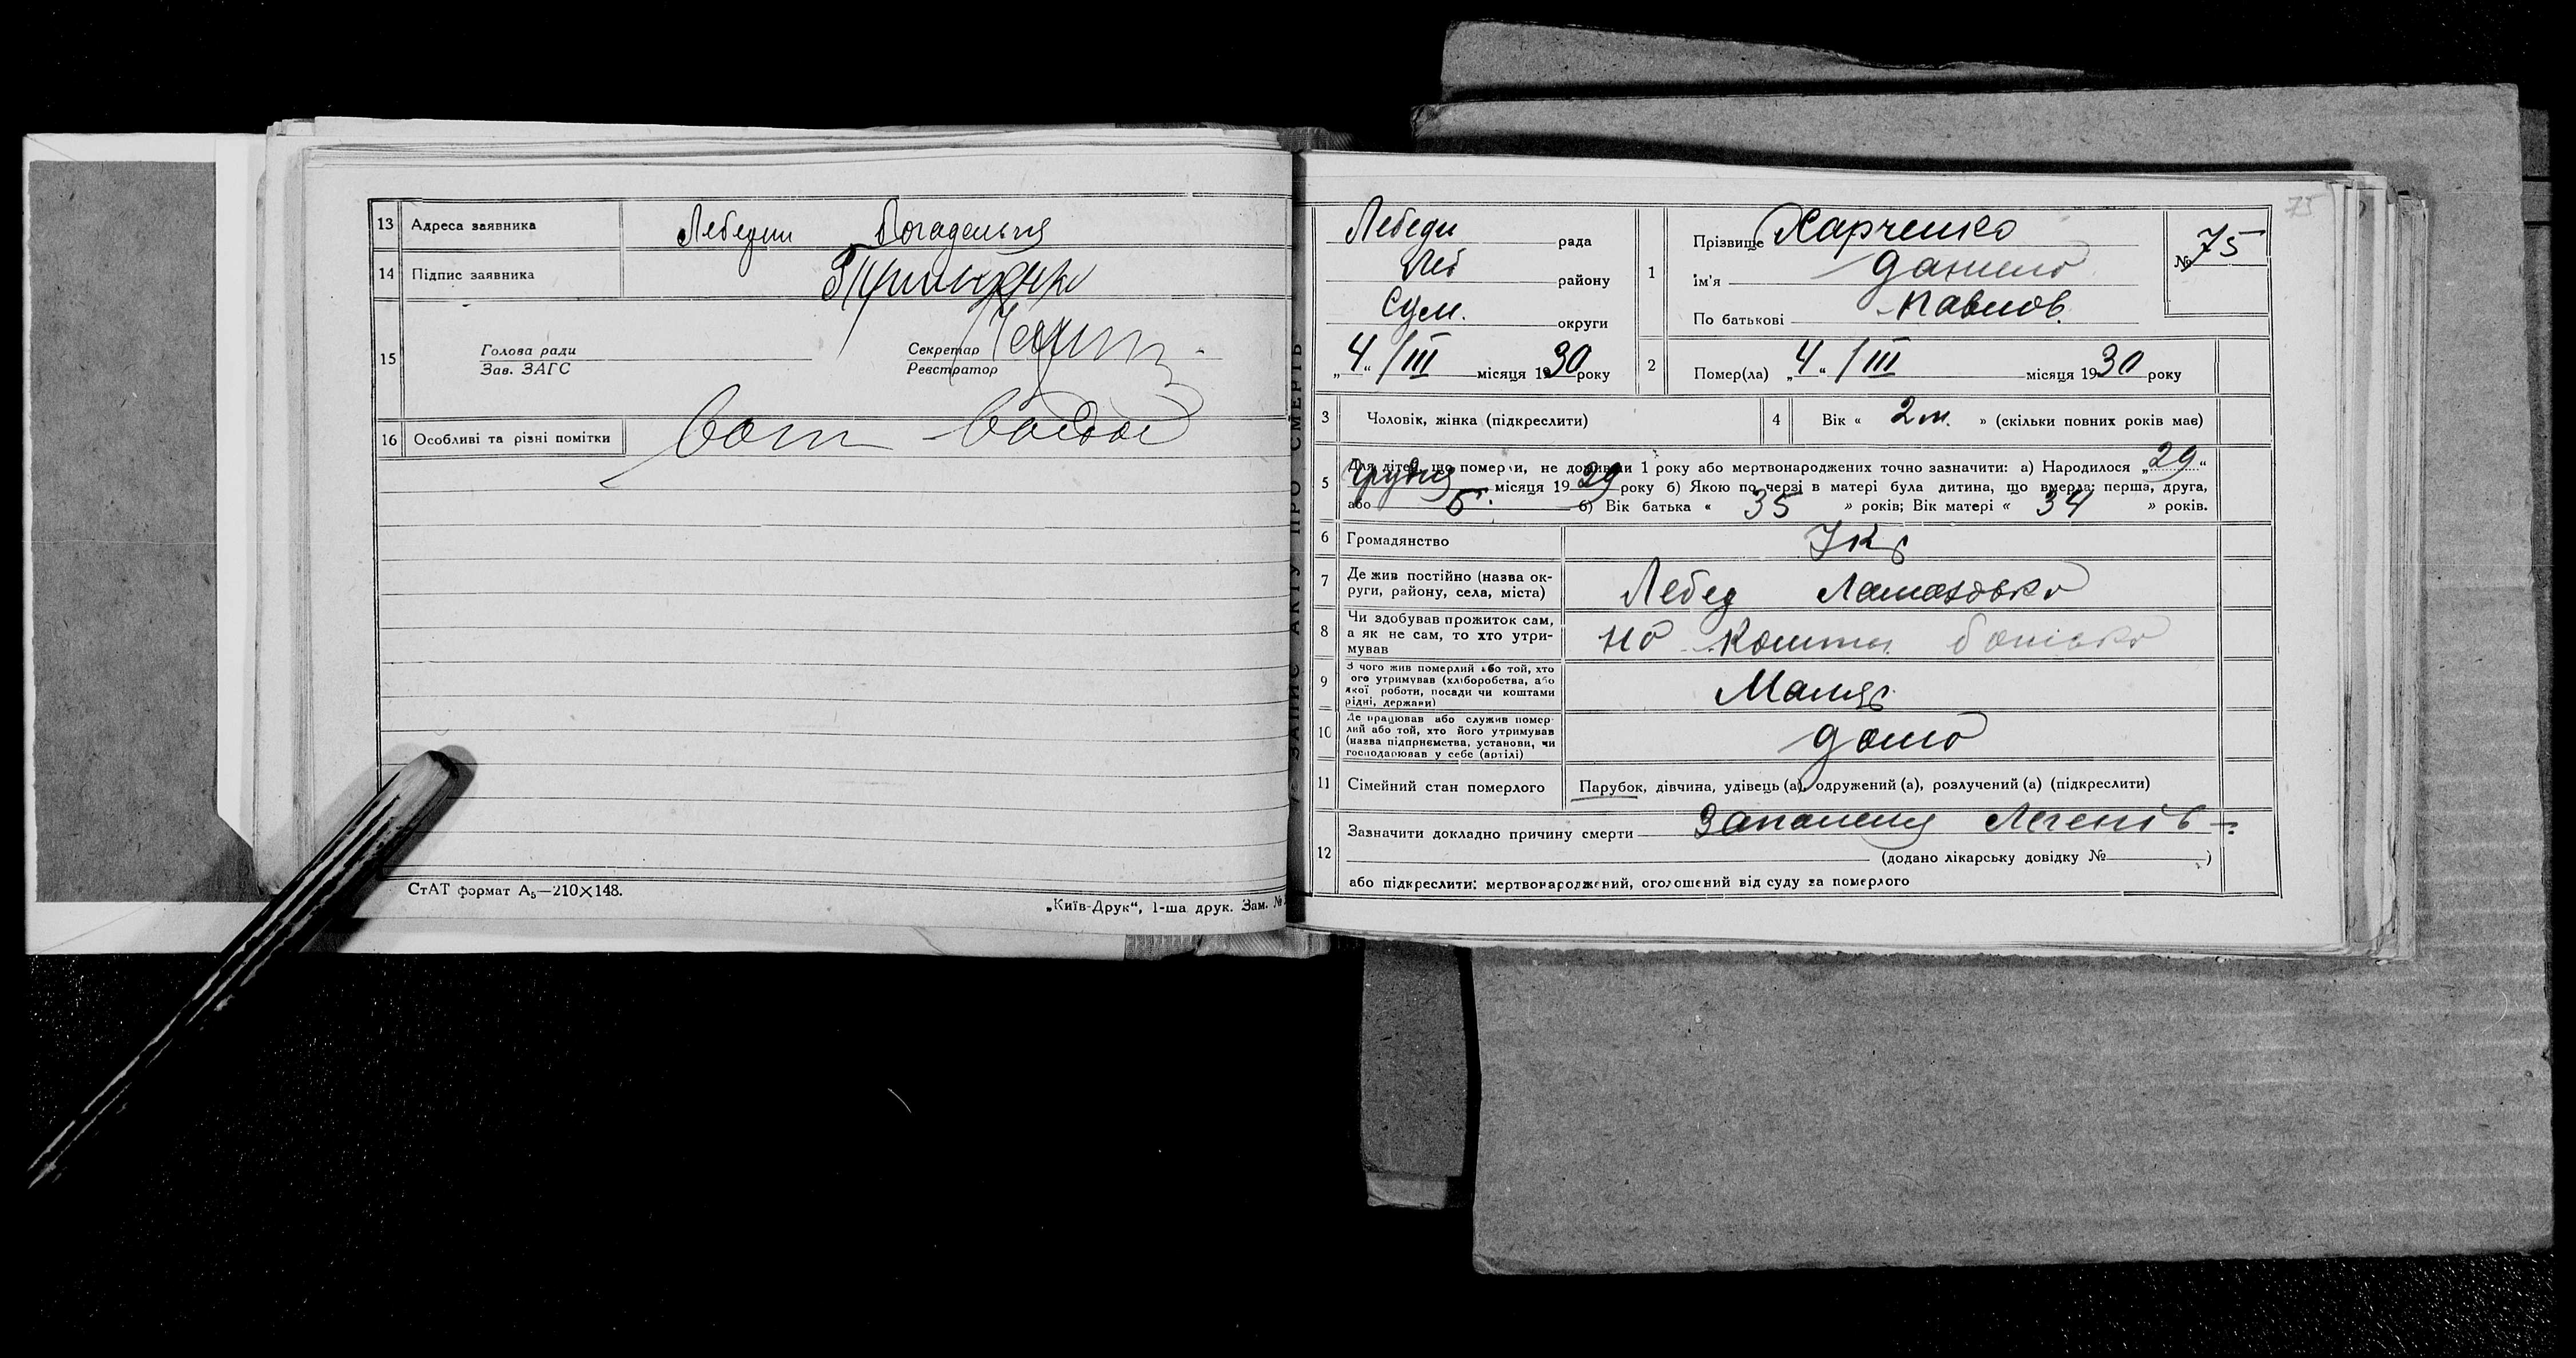 13 Адреса заявника Лебедин Богадельня
14 Підпис заявника
15 Голова ради
Зав. ЗАГС
Секретар
Реєстратор
16 Особливі та різні помітки
СтАТ формат А₅—210×148.
„Київ-Друк“, 1-ша друк. Зам. №
ЗАПИС АКТУ ПРО СМЕРТЬ
75
Лебедин рада
Леб району
Сум. округи
„4“/III місяця 1930 року
1 Прізвище Харченко
ім'я Данило
По батькові Павлов.
№ 75
2 Помер(ла) „4“/III місяця 1930 року
3 Чоловік, жінка (підкреслити)
4 Вік « 2 м. » (скільки повних років має)
5 Для дітей, що померли, не доживши 1 року або мертвонароджених точно зазначити: а) Народилося „29“
грудня місяця 1929 року б) Якою по черзі в матері була дитина, що вмерла: перша, друга,
або 6. в) Вік батька « 35 » років; Вік матері « 34 » років.
6 Громадянство Укр
7 Де жив постійно (назва ок-
руги, району, села, міста) Лебед
8 Чи здобував прожиток сам,
а як не сам, то хто утри-
мував на кошти батька
9 З чого жив померлий або той, хто
його утримував (хліборобства, або
якої роботи, посади чи коштами
рідні, держави) Маляр
10 Де працював або служив помер-
лий або той, хто його утримував
(назва підприємства, установи, чи
господарював у себе (артілі) дома
11 Сімейний стан померлого Парубок, дівчина, удівець (а), одружений (а), розлучений (а) (підкреслити)
12 Зазначити докладно причину смерти Запалення Легенів
(додано лікарську довідку № )
або підкреслити: мертвонароджений, оголошений від суду за померлого